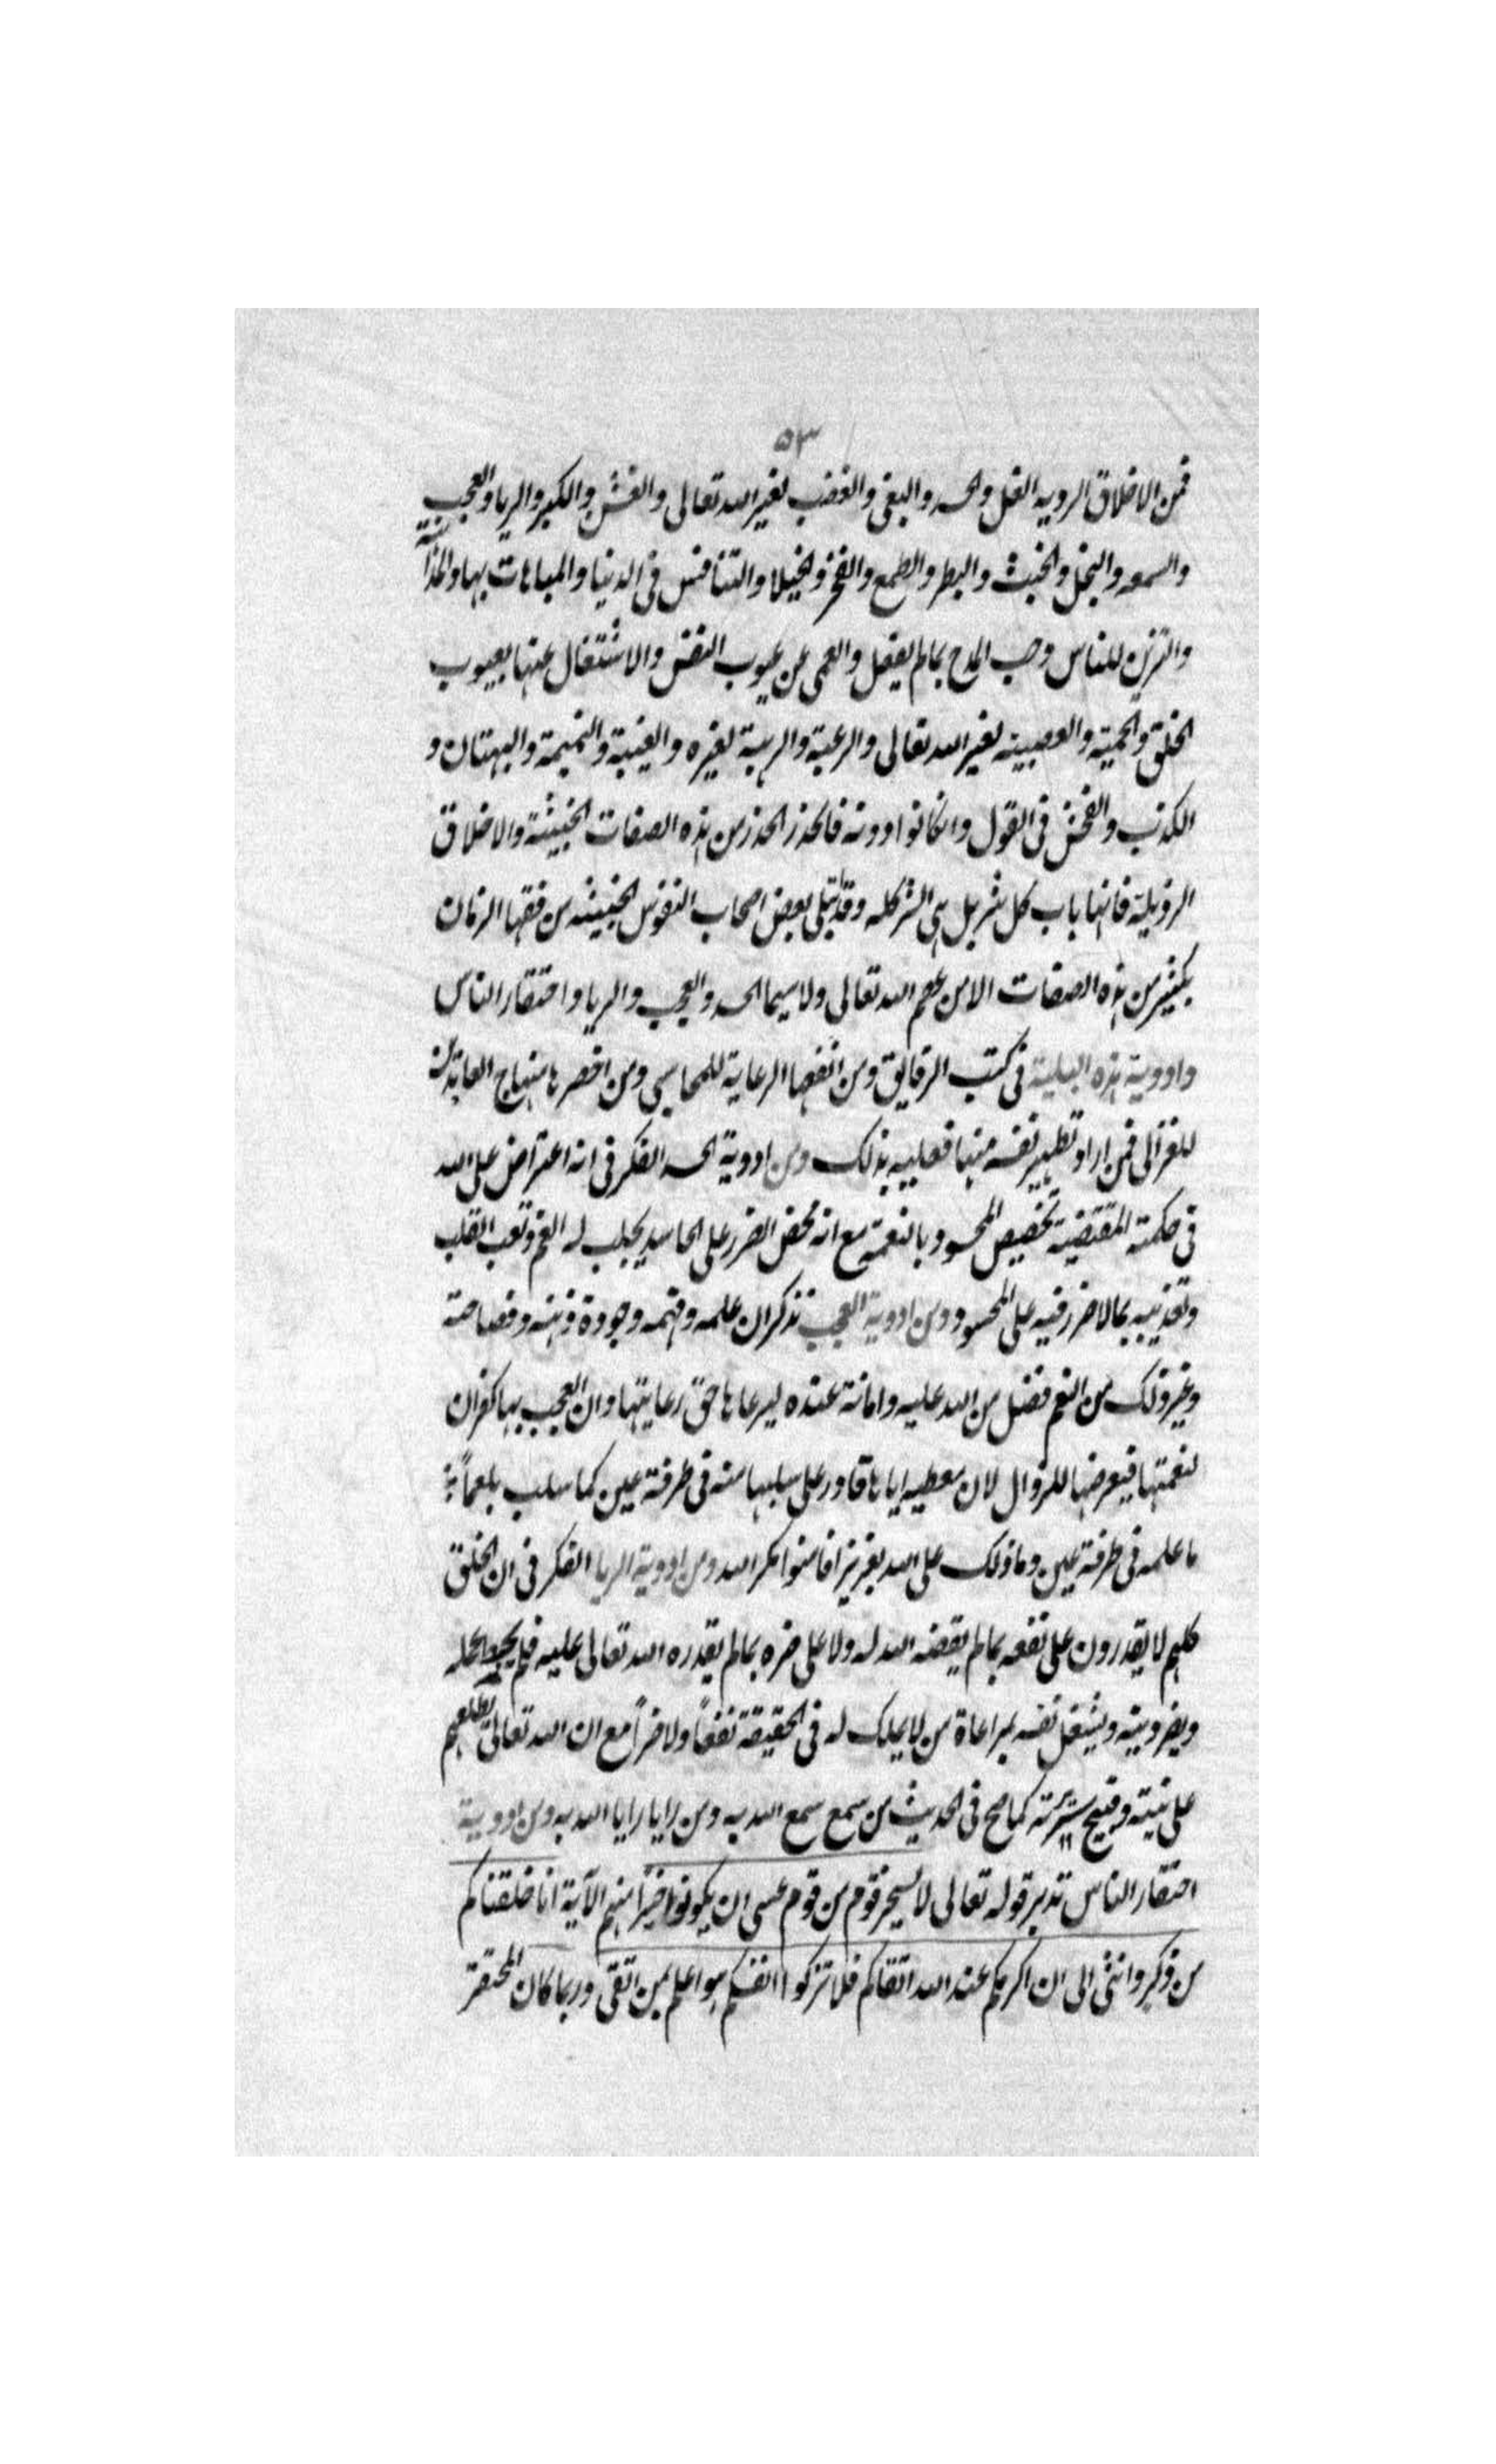 ٥٣
فمن الاخلاق الرديه الغل والحسد والبغى والغضب لغير الله تعالى والغش والكبر والريا والعجب
والسمعه والبخل والخبث والبطر والطمع والفخر والخيلا والتنافس فى الدينا والمباهات بها والمداهنة
والتزين للناس وحب المدح بما لم يفعل والعمى عن عيوب النفس والاشتغال عنها بعيوب
الخلق والحمية والعصبيته لغير الله تعالى والرغبة والرهبة لغيره والغيبة والنميمة والبهتان و
الكذب والفحش فى القول وان كانوا دونه فالحذر الحذر من هذه الصفات الخبيثة والاخلاق
الرذيلة فانها باب كل شر بل هى الشر كله وقد بتلى بعض اصحاب النفوس الخبيثه من فقها الزمان
بكثير من هذه الصفات الا من عصم الله تعالى ولا سيما الحسد والعجب والريا واحتقار الناس
وادوية هذه البلية فى كتب الرقايق ومن انفعها الرعاية للمحاسبى ومن اخصرها منهاج العابدين
للغزالى فمن اراد تطهير نفسه منها فعليه بذلك ومن ادوية الحسد الفكر فى انه اعتراض على الله
فى حكمته المقتضية تخصيص المحسود بالنعمة مع انه محض الضرر على الحاسد يجلب له الغم وتعب القلب
وتعذيبه بما لا ضرر فيه على المحسود ومن ادوية العجب تذكر ان علمه وفهمه وجودة ذهنه وفصاحته
وغير ذلك من النعم فضل من الله عليه وامانة عنده ليرعاها حق رعايتها وان العجب بها كفران
لنعمتها فيعرضها للزوال لان معطيه اياها قادر على سلبها منه فى طرفة عين كما سلب بلعماً
ما علمه فى طرفة عين وما ذلك على الله بعزيز افامنوا مكر الله ومن ادوية الريا الفكر فى ان الخلق
كلهم لا يقدرون على نفعه بما لم يقضه الله له ولا على ضره بما لم يقدره الله تعالى عليه فلم يحبط عمله
ويضر دينه ويشغل نفسه بمراعاة من لا يملك له فى الحقيقة نفعاً ولا ضراً مع ان الله تعالى يطلعهم
على نيته وقبيح سريرته كما صح فى الحديث من سمع سمع الله به ومن رايا رايا الله به ومن ادوية
احتقار الناس تدبر قوله تعالى لا يسخر قوم من قوم عسى ان يكونوا خيراً منهم الآية انا خلقناكم
من ذكر وانثى الى ان اكرمكم عند الله اتقاكم فلا تزكوا انفسكم هو اعلم بمن اتقى وربما كان المحتقر